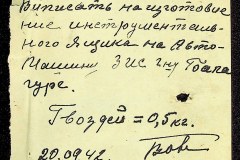 Выписать на изготовле
ние инструменталь-
ного ящика на Авто-
Машину ЗИС
гуре.
Гвоздей = 0,5 кг.
20.09.42.